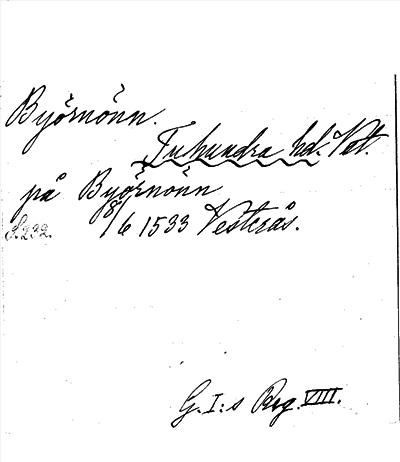 Byörnönn.
Tuhundra hd. Vst.
på Byörnönn
S.232. 18/6 1533 Vesterås.
G.I:s Reg. VIII.